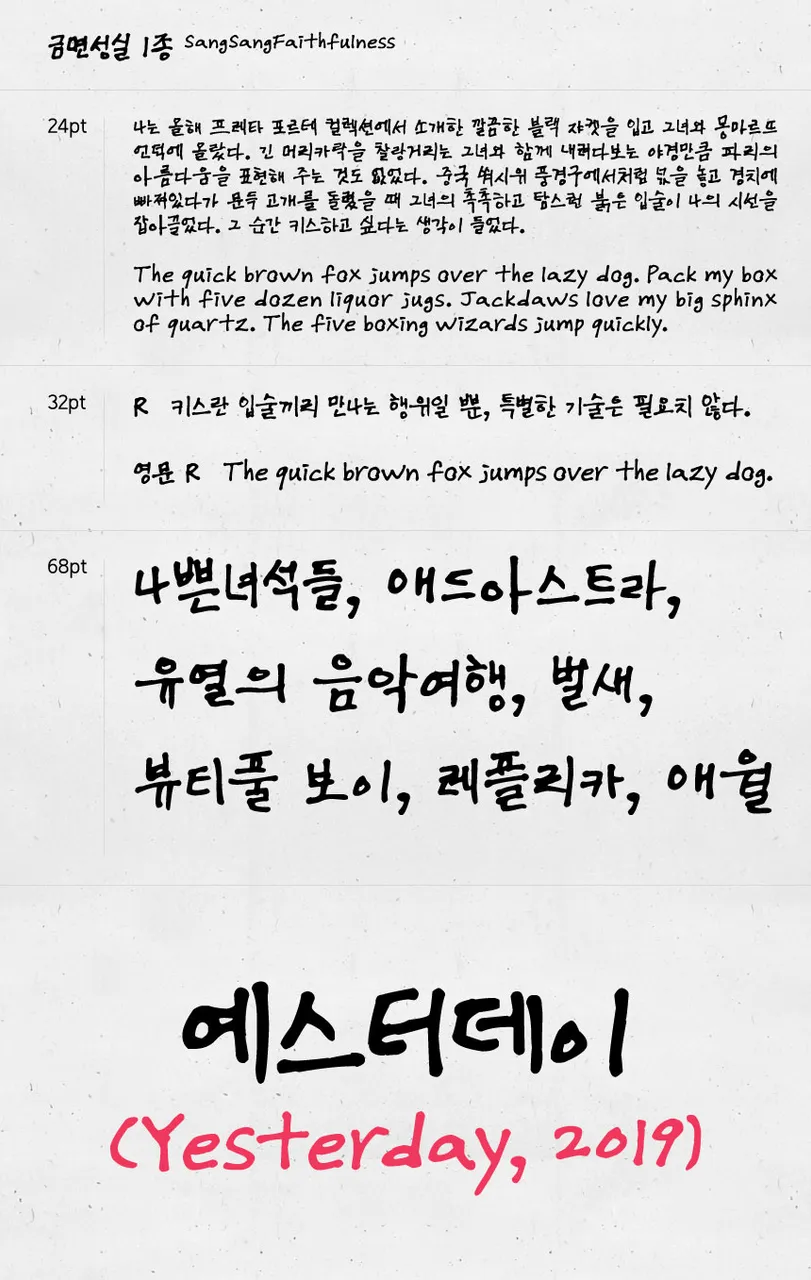 금면성실 1종 SangSangFaithfulness
24pt
나는 올해 프레타 포르테 컬렉션에서 소개한 깔끔한 블랙 쟈켓을 입고 그녀와 몽마르뜨
언덕에 올랐다. 긴 머리카락을 찰랑거리는 그녀와 함께 내려다보는 야경만큼 파리의
아름다움을 표현해 주는 것도 없었다. 중국 쒀시위 풍경구에서처럼 넋을 놓고 경치에
빠져있다가 문득 고개를 돌렸을 때 그녀의 촉촉하고 탐스런 붉은 입술이 나의 시선을
잡아끌었다. 그 순간 키스하고 싶다는 생각이 들었다.
The quick brown fox jumps over the lazy dog. Pack my box
with five dozen liquor jugs. Jackdaws love my big sphinx
of quartz. The five boxing wizards jump quickly.
32pt
R 키스란 입술끼리 만나는 행위일 뿐, 특별한 기술은 필요치 않다.
영문 R The quick brown fox jumps over the lazy dog.
68pt
나쁜녀석들, 애드아스트라,
유열의 음악여행, 벌새,
뷰티풀 보이, 레플리카, 애월
예스터데이
(Yesterday, 2019)